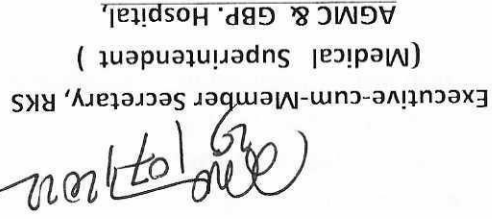 Executive-cum-Member-Secretary, RKS
(Medical Superintendent )
AGMC & GBP. Hospital,